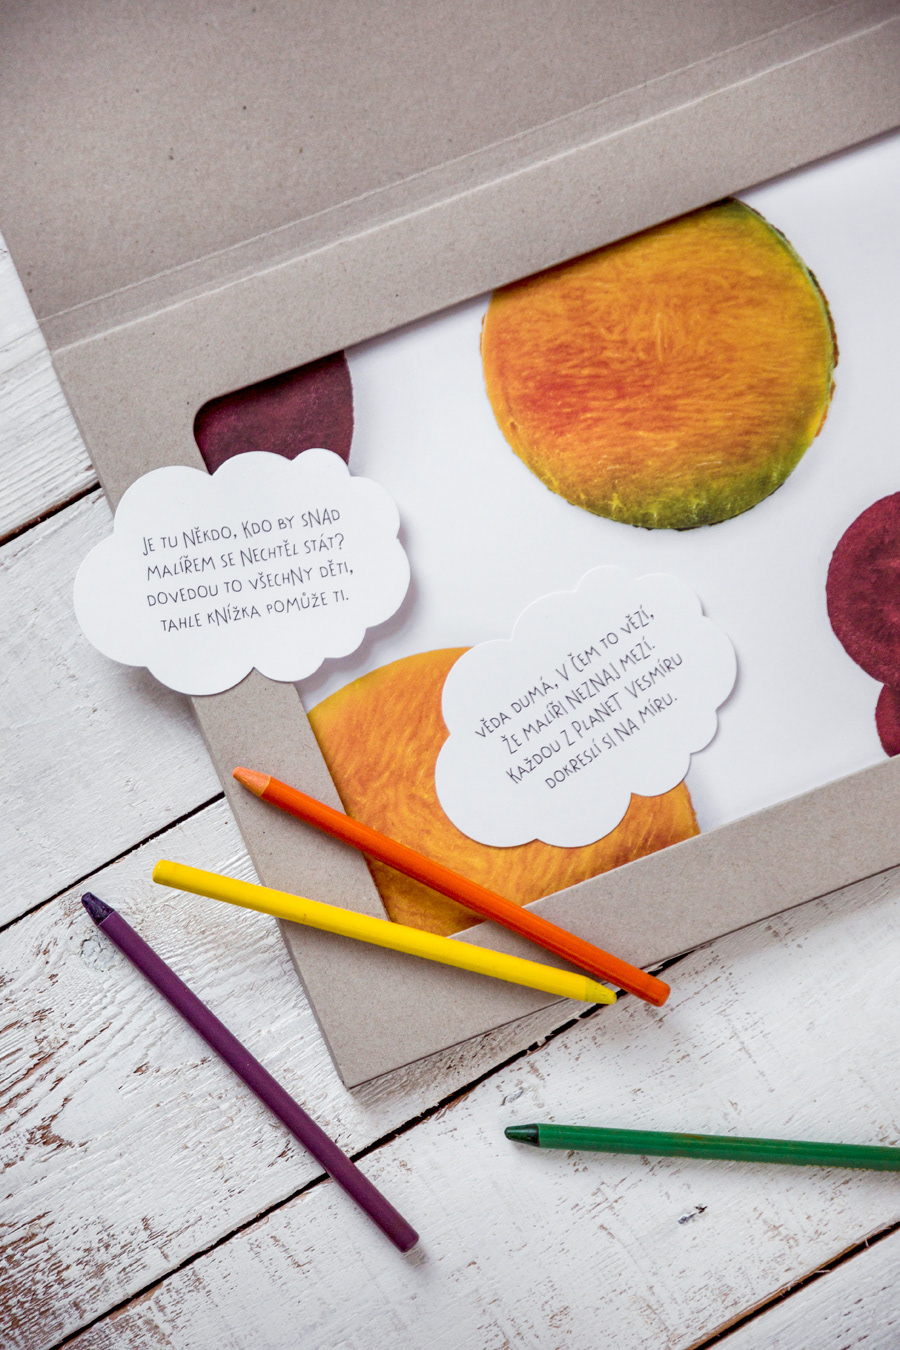 JE TU NĚKDO, KDO BY SNAD
MALÍŘEM SE NECHTĚL STÁT?
DOVEDOU TO VŠECHNY DĚTI,
TAHLE KNÍŽKA POMŮŽE TI.
VĚDA DUMÁ, V ČEM TO VĚZÍ,
ŽE MALÍŘI NEZNAJ MEZÍ.
KAŽDOU Z PLANET VESMÍRU
DOKRESLÍ SI NA MÍRU.